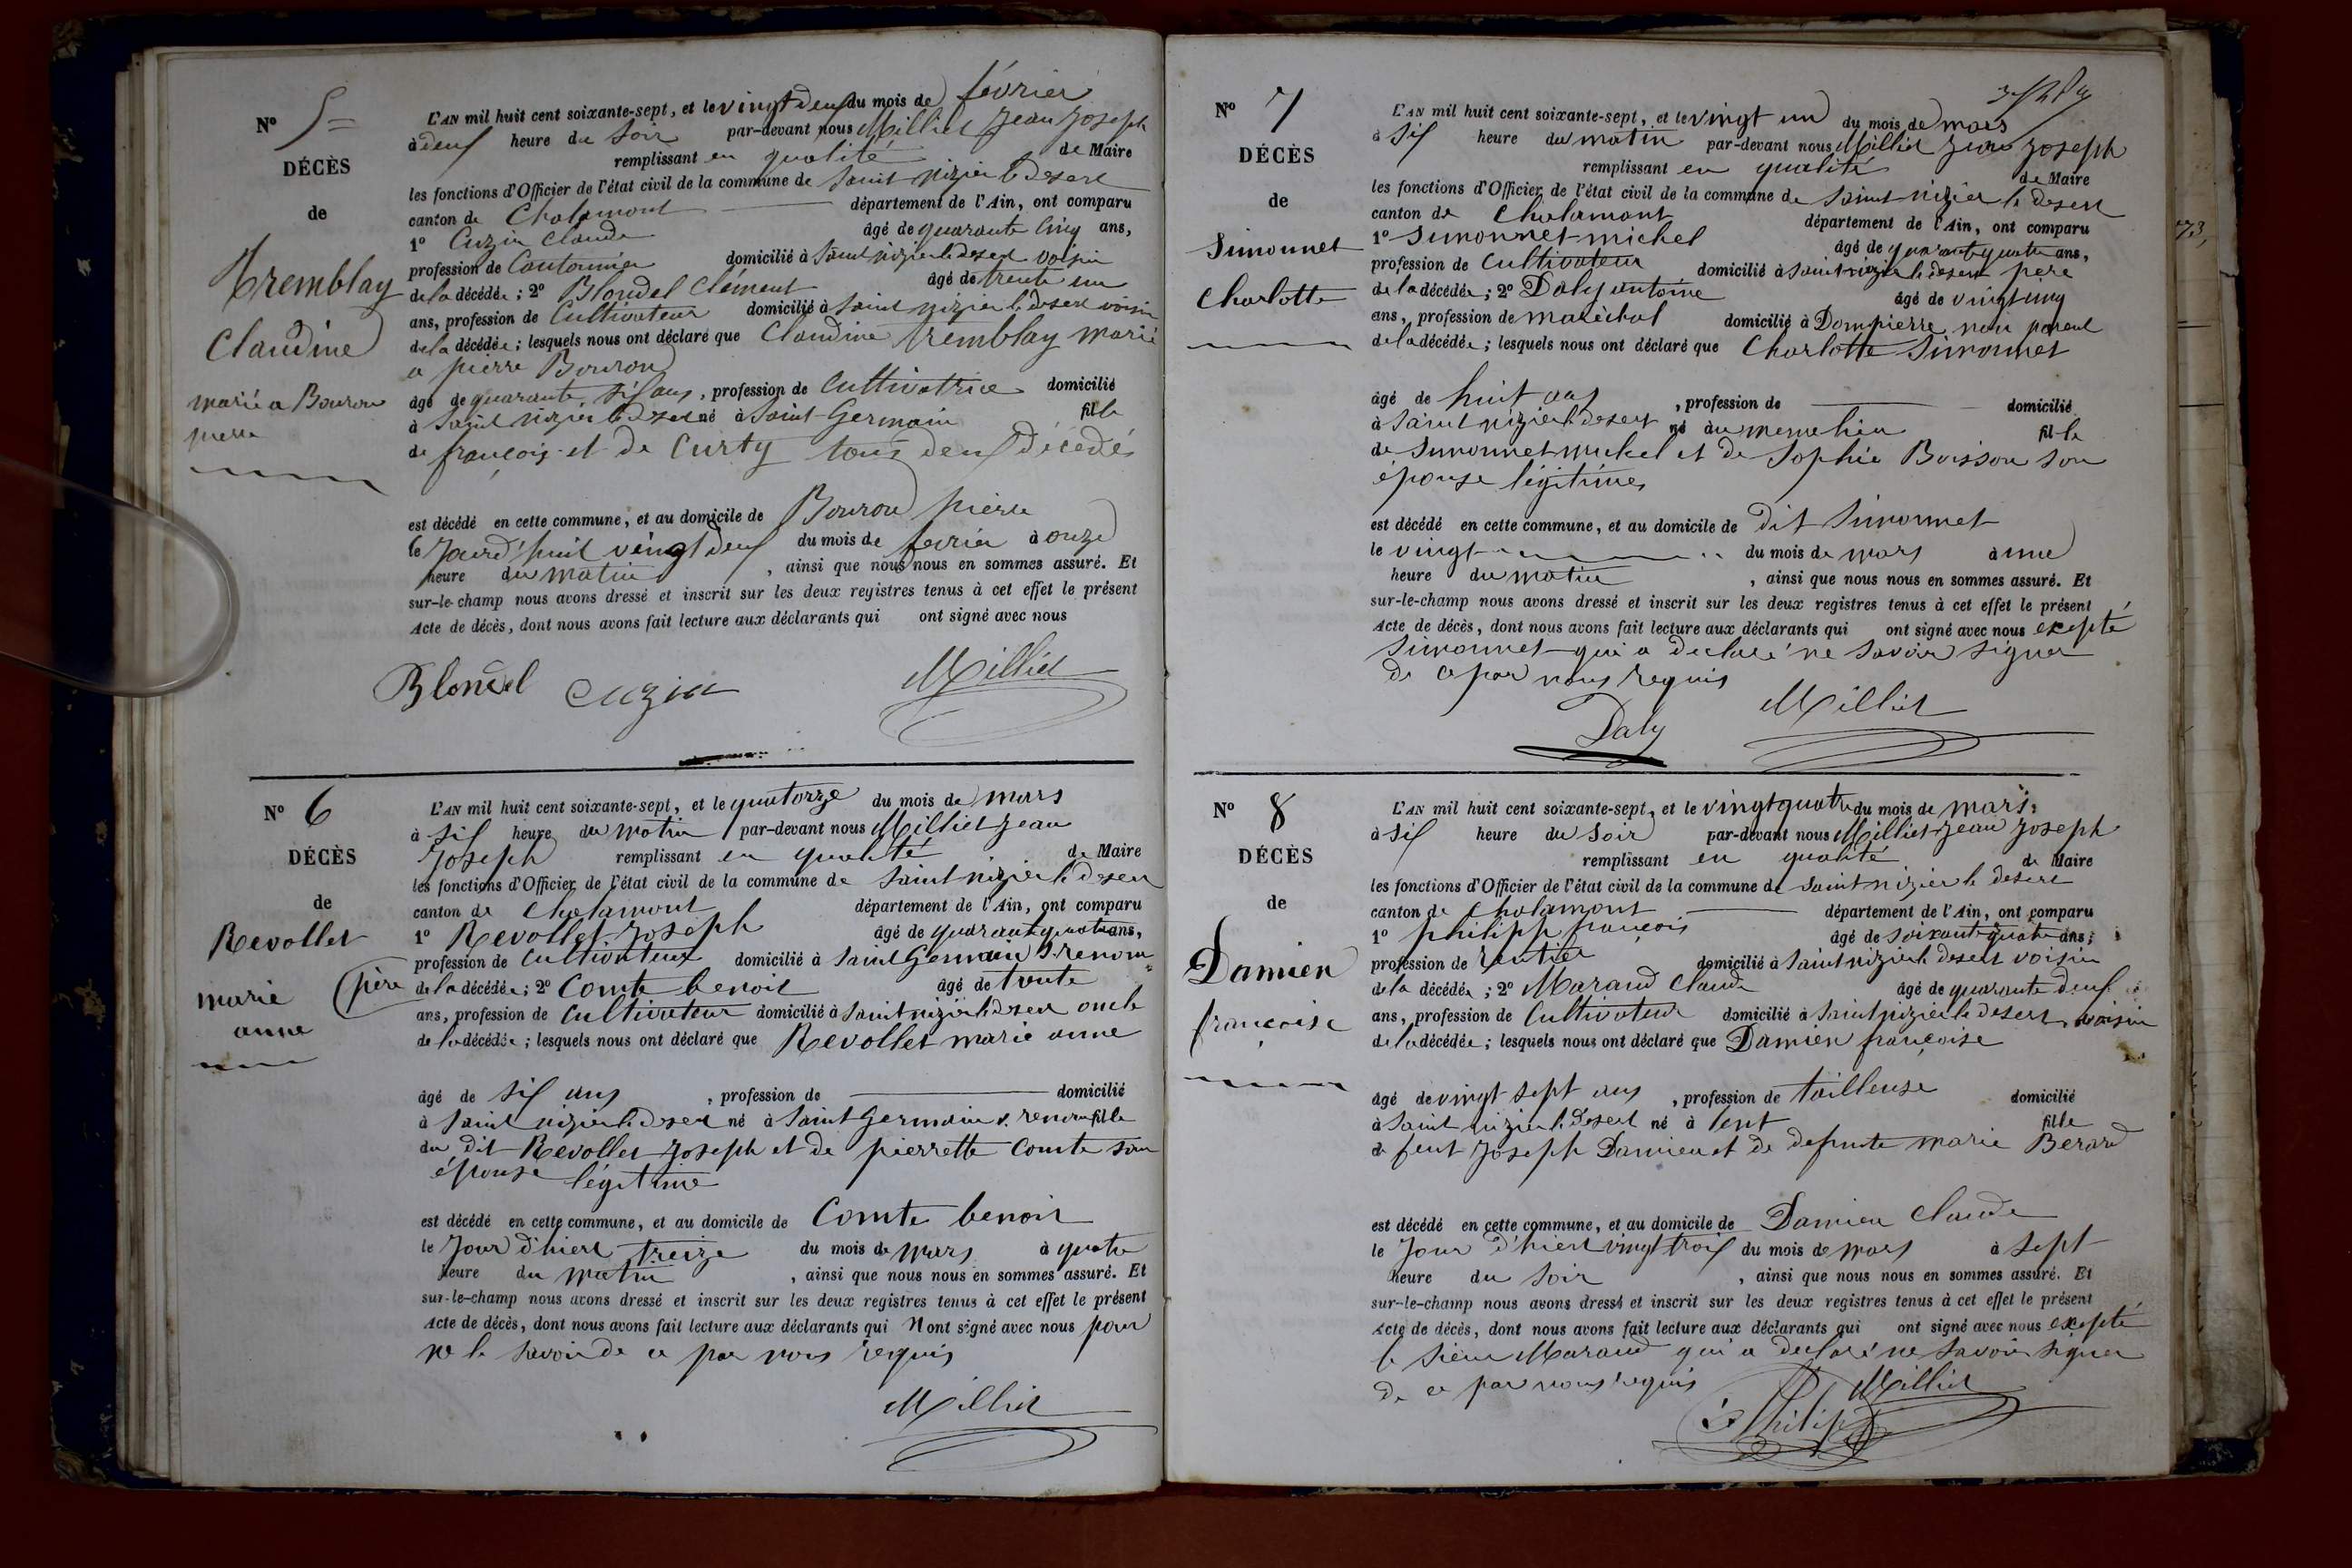 N° 5
DÉCÈS
de
Tremblay
Claudine
marié a Bouron
pierre
L'AN mil huit cent soixante-sept, et le vingt deux du mois de février
à deux heure du soir par-devant nous Milliet Jean Joseph
remplissant en qualité de Maire
les fonctions d'Officier de l'état civil de la commune de saint nizier le desert
canton de Chalamont département de l'Ain, ont comparu
1° Cuzin Claude âgé de quarante cinq ans,
profession de Cantonnier domicilié à Saint nizier le desert voisin
de la décédée ; 2° Blondel Clément âgé de trente un
ans, profession de Cultivateur domicilié à saint nizier le desert voisin
de la décédée ; lesquels nous ont déclaré que Claudine Tremblay marié
a pierre Bouron
âgé de quarante six ans, profession de Cultivatrice domicilié
à Saint nizier le desert né à Saint Germain fille
de françois et de Curty tous deux décédés
est décédé en cette commune, et au domicile de Bouron pierre
le Jourd'huit vingt deux du mois de fevrier à onze
heure du matin , ainsi que nous nous en sommes assuré. Et
sur-le-champ nous avons dressé et inscrit sur les deux registres tenus à cet effet le présent
Acte de décès, dont nous avons fait lecture aux déclarants qui ont signé avec nous
Blondel Cuzin Milliet
N° 6
DÉCÈS
de
Revollet
marie
anne
L'AN mil huit cent soixante-sept, et le quatorze du mois de mars
à six heure du matin par-devant nous Milliet Jean
Joseph remplissant en qualité de Maire
les fonctions d'Officier de l'état civil de la commune de saint nizier le desert
canton de Chalamont département de l'Ain, ont comparu
1° Revollet Joseph âgé de quarante quatre ans,
profession de Cultivateur domicilié à Saint Germain s. renom
père de la décédée ; 2° Comte benoit âgé de trente
ans, profession de Cultivateur domicilié à saint nizier le desert oncle
de la décédée ; lesquels nous ont déclaré que Revollet marie anne
âgé de six ans , profession de domicilié
à Saint nizier le desert né à Saint Germain s. renom fille
du dit Revollet Joseph et de pierrette Comte son
épouse légitime
est décédé en cette commune, et au domicile de Comte benoit
le Jour d'hiert treize du mois de mars à quatre
heure du matin , ainsi que nous nous en sommes assuré. Et
sur-le-champ nous avons dressé et inscrit sur les deux registres tenus à cet effet le présent
Acte de décès, dont nous avons fait lecture aux déclarants qui N ont signé avec nous pour
ne le savoir de ce par nous requis
Milliet
N° 7
DÉCÈS
de
Simonnet
Charlotte
L'AN mil huit cent soixante-sept, et le vingt un du mois de mars
à six heure du matin par-devant nous Milliet Jean Joseph
remplissant en qualité de Maire
les fonctions d'Officier de l'état civil de la commune de saint nizier le desert
canton de Chalamont département de l'Ain, ont comparu
1° Simonnet michel âgé de quarante quatre ans,
profession de Cultivateur domicilié à saint nizier le desert pere
de la décédée ; 2° Daly antoine âgé de vingt cinq
ans, profession de maréchal domicilié à Dompierre non parent
de la décédée ; lesquels nous ont déclaré que Charlotte Simonnet
âgé de huit ans , profession de domicilié
à Saint nizier le desert né au meme lieu fille
de Simonnet michel et de Sophie Buisson son
épouse légitime
est décédé en cette commune, et au domicile de dit Simonnet
le vingt du mois de mars à une
heure du matin , ainsi que nous nous en sommes assuré. Et
sur-le-champ nous avons dressé et inscrit sur les deux registres tenus à cet effet le présent
Acte de décès, dont nous avons fait lecture aux déclarants qui ont signé avec nous excepté
Simonnet qui a declaré ne savoir signer
de ce par nous requis
Daly Milliet
N° 8
DÉCÈS
de
Damien
françoise
L'AN mil huit cent soixante-sept, et le vingt quatre du mois de mars
à six heure du soir par-devant nous Milliet Jean Joseph
remplissant en qualité de Maire
les fonctions d'Officier de l'état civil de la commune de saint nizier le desert
canton de Chalamont département de l'Ain, ont comparu
1° philipp françois âgé de soixante quatre ans,
profession de rentier domicilié à Saint nizier le desert voisin
de la décédée ; 2° Maraud Claude âgé de quarante deux
ans, profession de Cultivateur domicilié à Saint nizier le desert voisin
de la décédée ; lesquels nous ont déclaré que Damien françoise
âgé de vingt sept ans , profession de tailleuse domicilié
à Saint nizier le desert né à lent fille
de feut Joseph Damien et de defunte marie Berard
est décédé en cette commune, et au domicile de Damien Claude
le Jour d'hiert vingt trois du mois de mars à sept
heure du soir , ainsi que nous nous en sommes assuré. Et
sur-le-champ nous avons dressé et inscrit sur les deux registres tenus à cet effet le présent
Acte de décès, dont nous avons fait lecture aux déclarants qui ont signé avec nous excepté
le sieur Maraud qui a declaré ne savoir signer
de ce par nous requis
Milliet
Philipp
73,